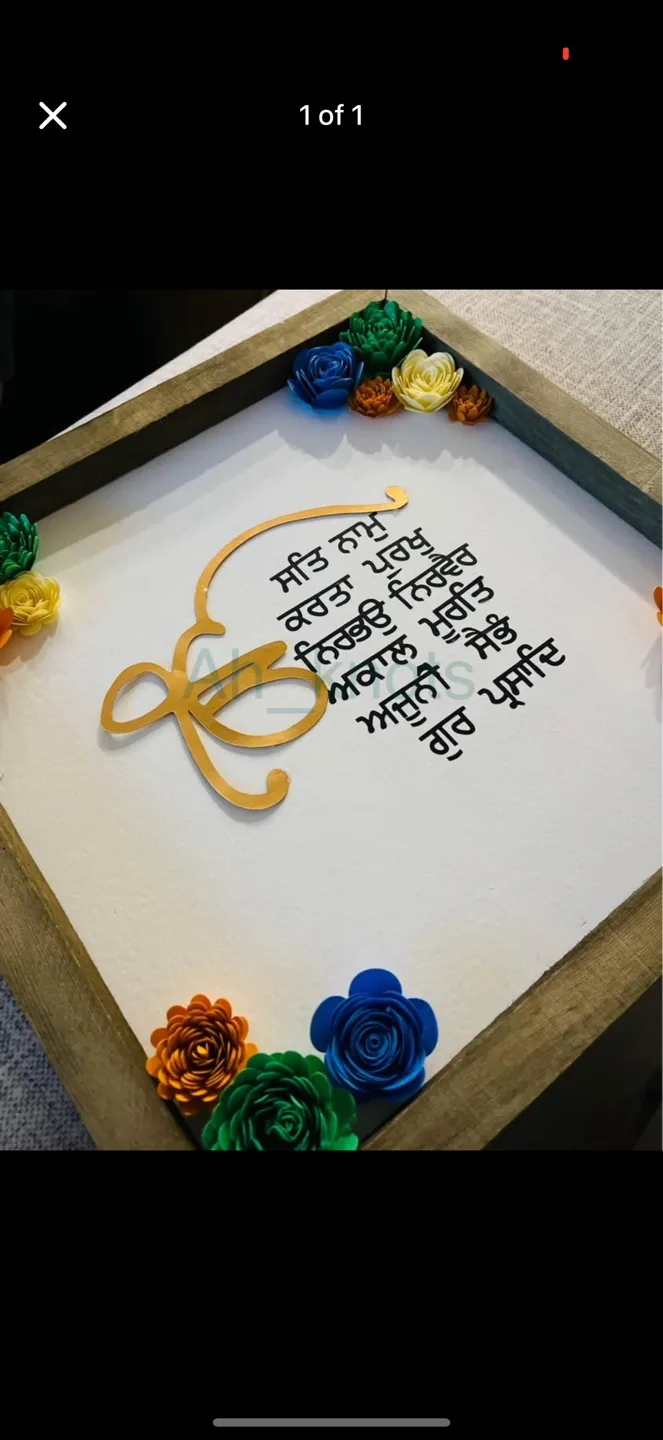 1 of 1
ੴ
ਸਤਿ ਨਾਮੁ
ਕਰਤਾ ਪੁਰਖੁ
ਨਿਰਭਉ ਨਿਰਵੈਰ
ਅਕਾਲ ਮੂਰਤਿ
ਅਜੂਨੀ ਸੈਭੰ
ਗੁਰ ਪ੍ਰਸਾਦਿ
Ah_knots